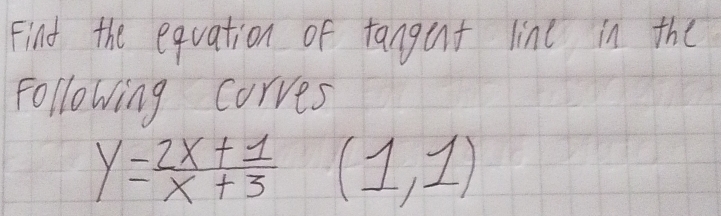 Find the equation of tangent line in the
Following curves
y = 2x + 1 / x + 3 (1,1)